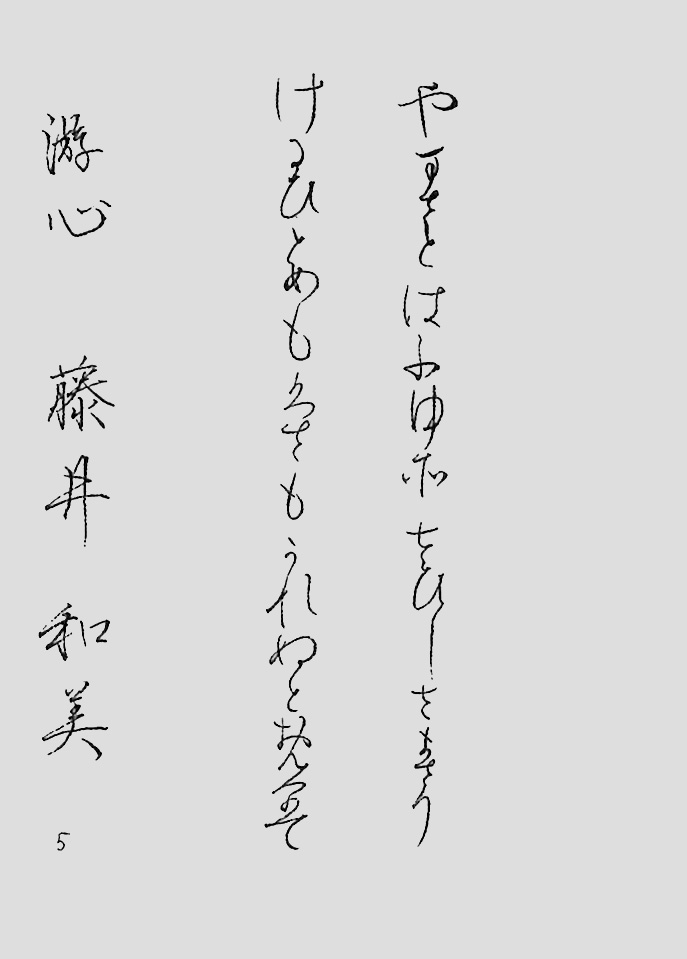 やまさとはふゆそさひしさまさり
けるひとめもくさもかれぬとおもへは
游心 藤井 和美
5